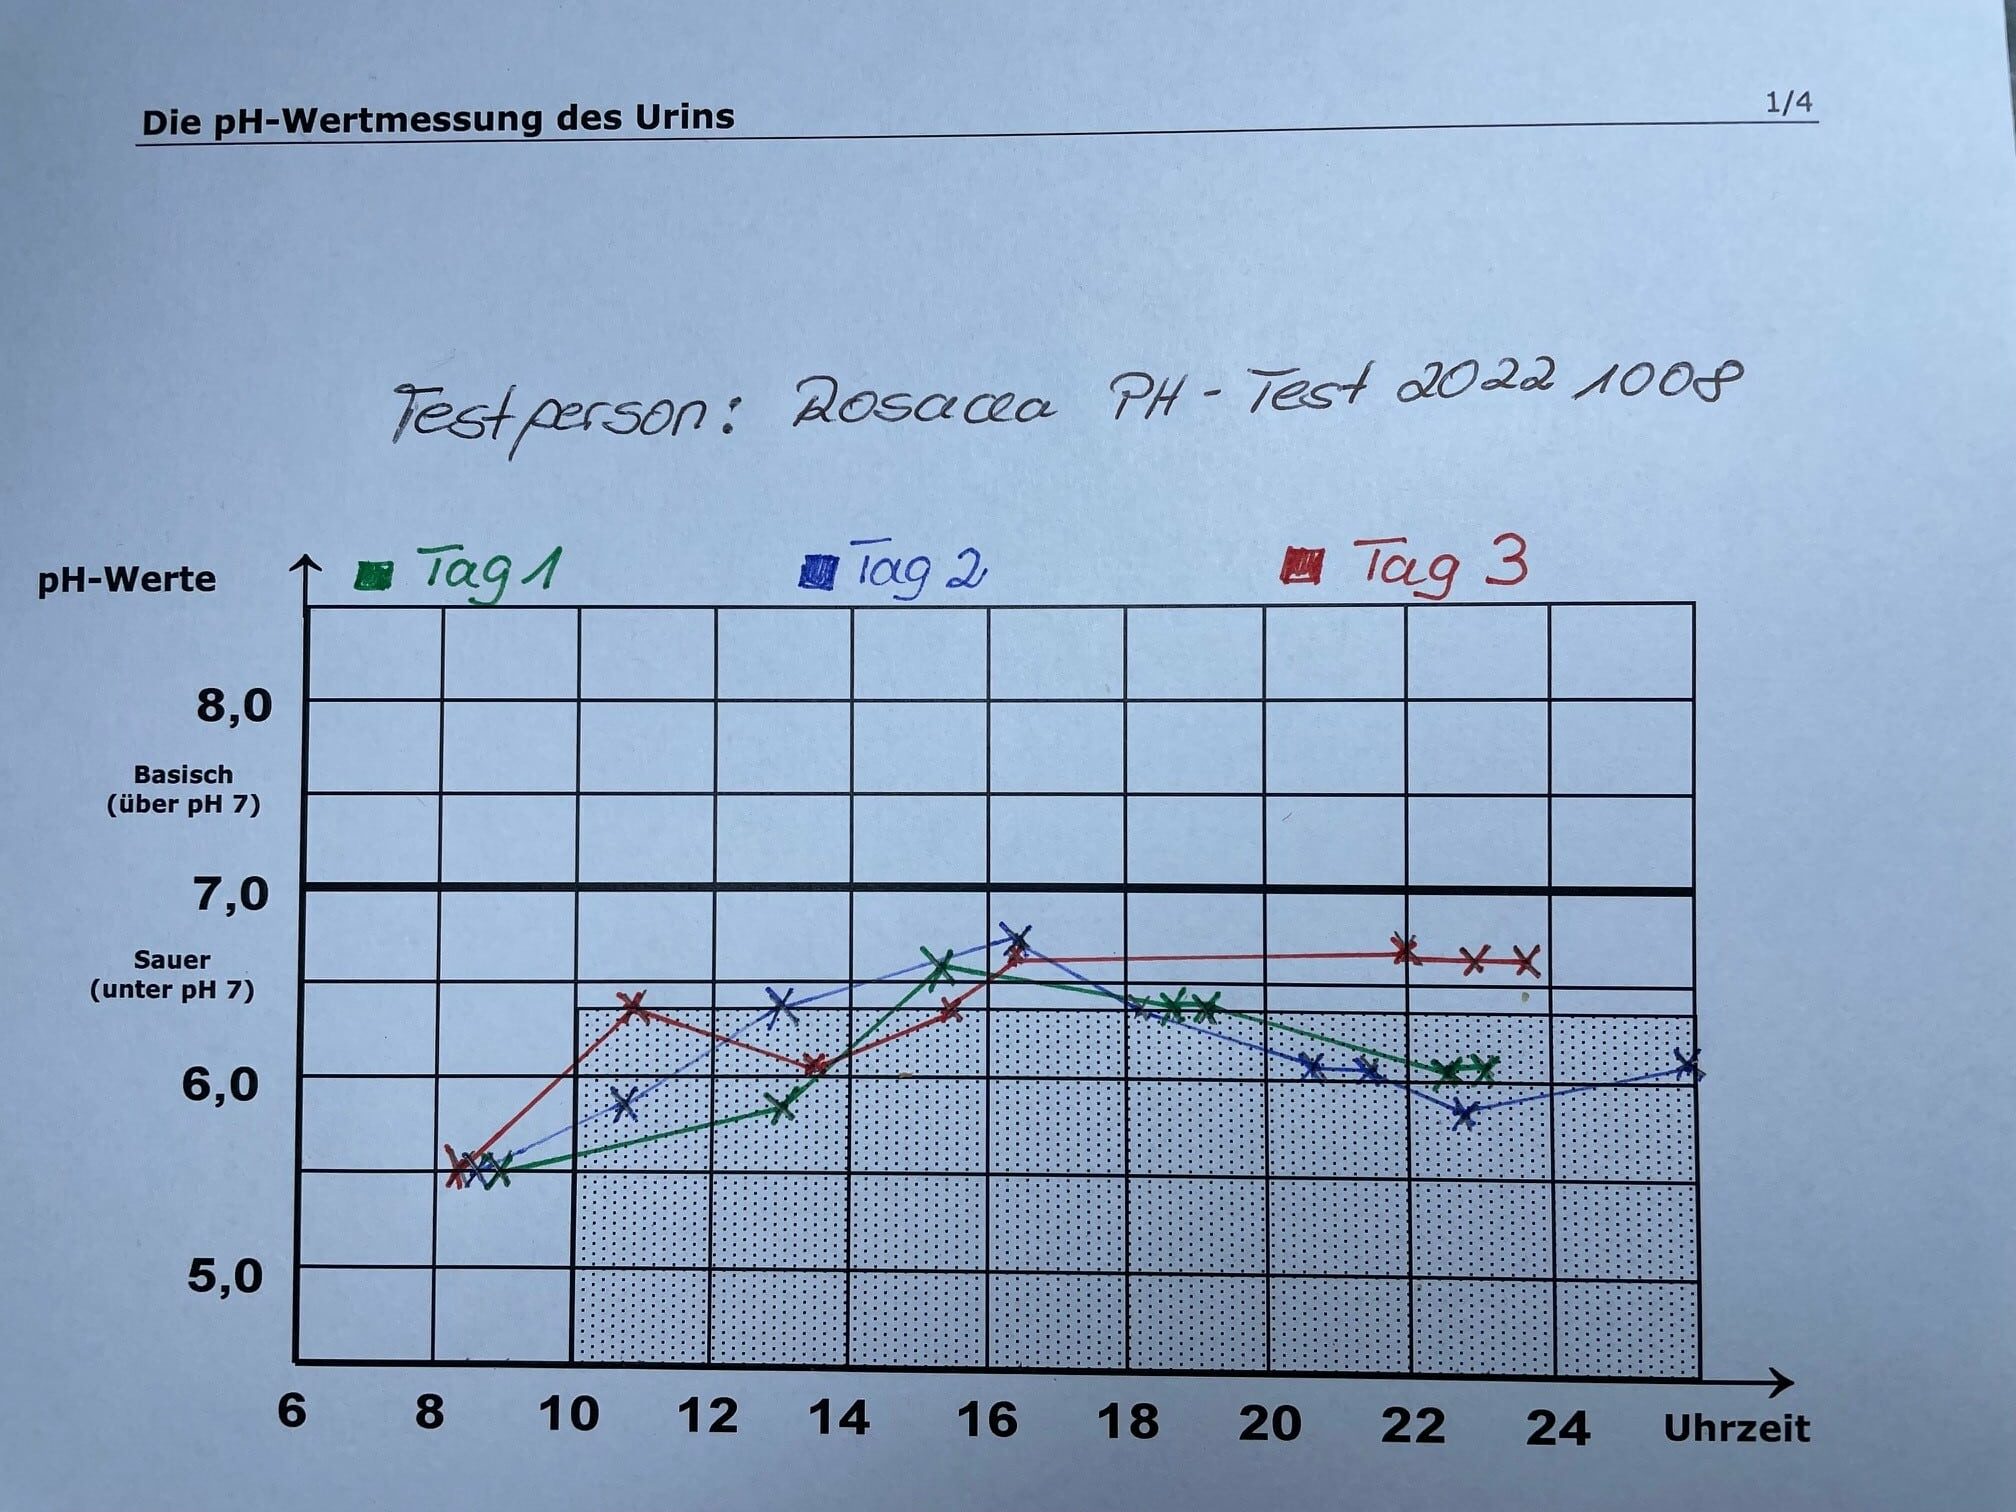 Die pH-Wertmessung des Urins 1/4
Testperson: Rosacea PH-Test 2022 1008
pH-Werte Tag 1 Tag 2 Tag 3
8,0
Basisch
(über pH 7)
7,0
Sauer
(unter pH 7)
6,0
5,0
6 8 10 12 14 16 18 20 22 24 Uhrzeit